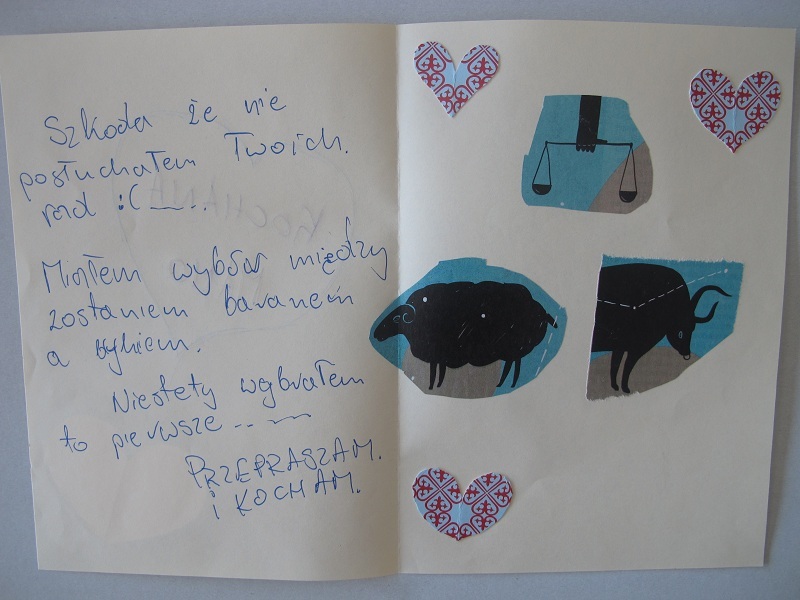 Szkoda że nie
posłuchałem Twoich
rad :(
Miałem wybór między
zostaniem baranem
a bykiem.
Niestety wybrałem
to pierwsze ...
PRZEPRASZAM.
i KOCHAM.
KOCHANA